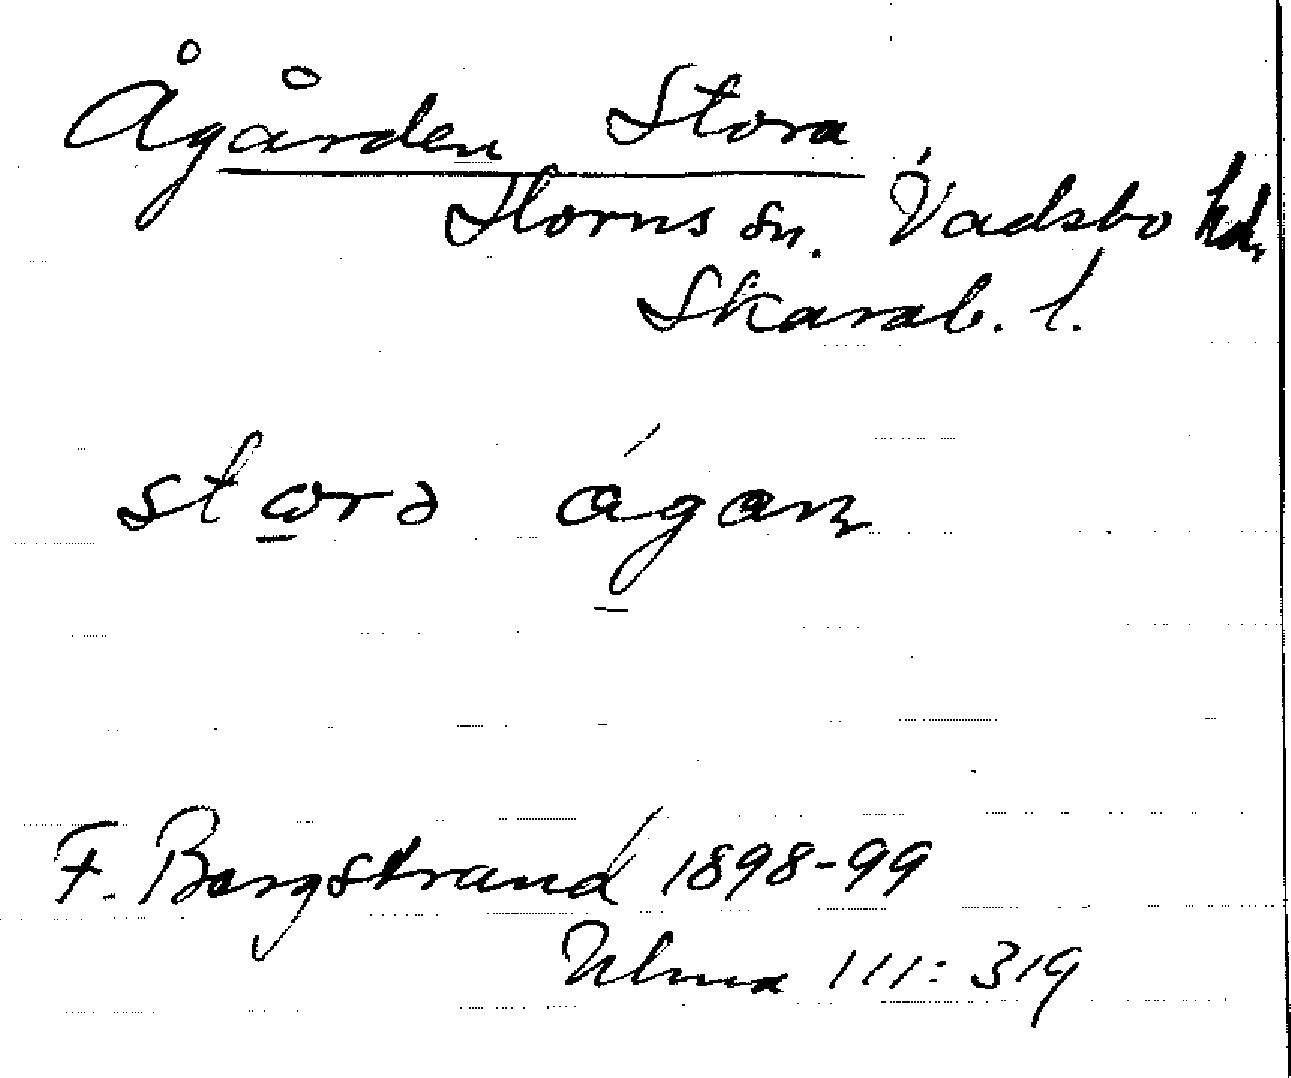 Ågården Stora
Horns sn. Vadsbo hd.
Skarab. l.
stωrə ágaɳ
F. Bergstrand 1898-99
Ulma 111:319